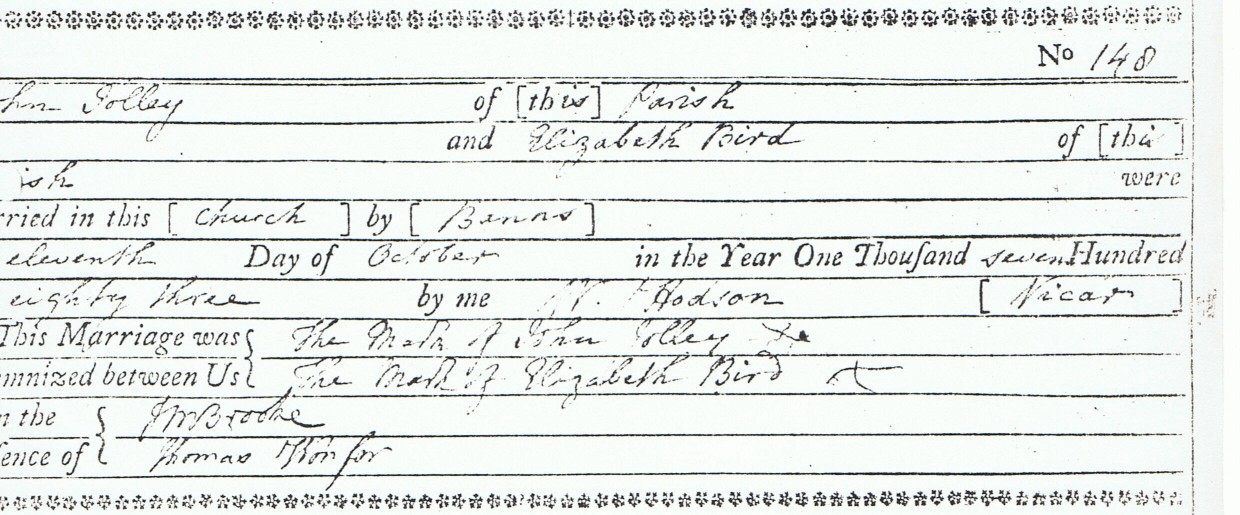 No 148
hn Jolley of [this] Parish
and Elizabeth Bird of [this]
ish were
rried in this [Church] by [Banns]
eleventh Day of October in the Year One Thouſand seven Hundred
eighty three by me Hodson [Vicar]
This Marriage was { The Mark of John Jolley x
mnized between Us { The Mark of Elizabeth Bird x
n the { Brooke
ſence of { Thomas